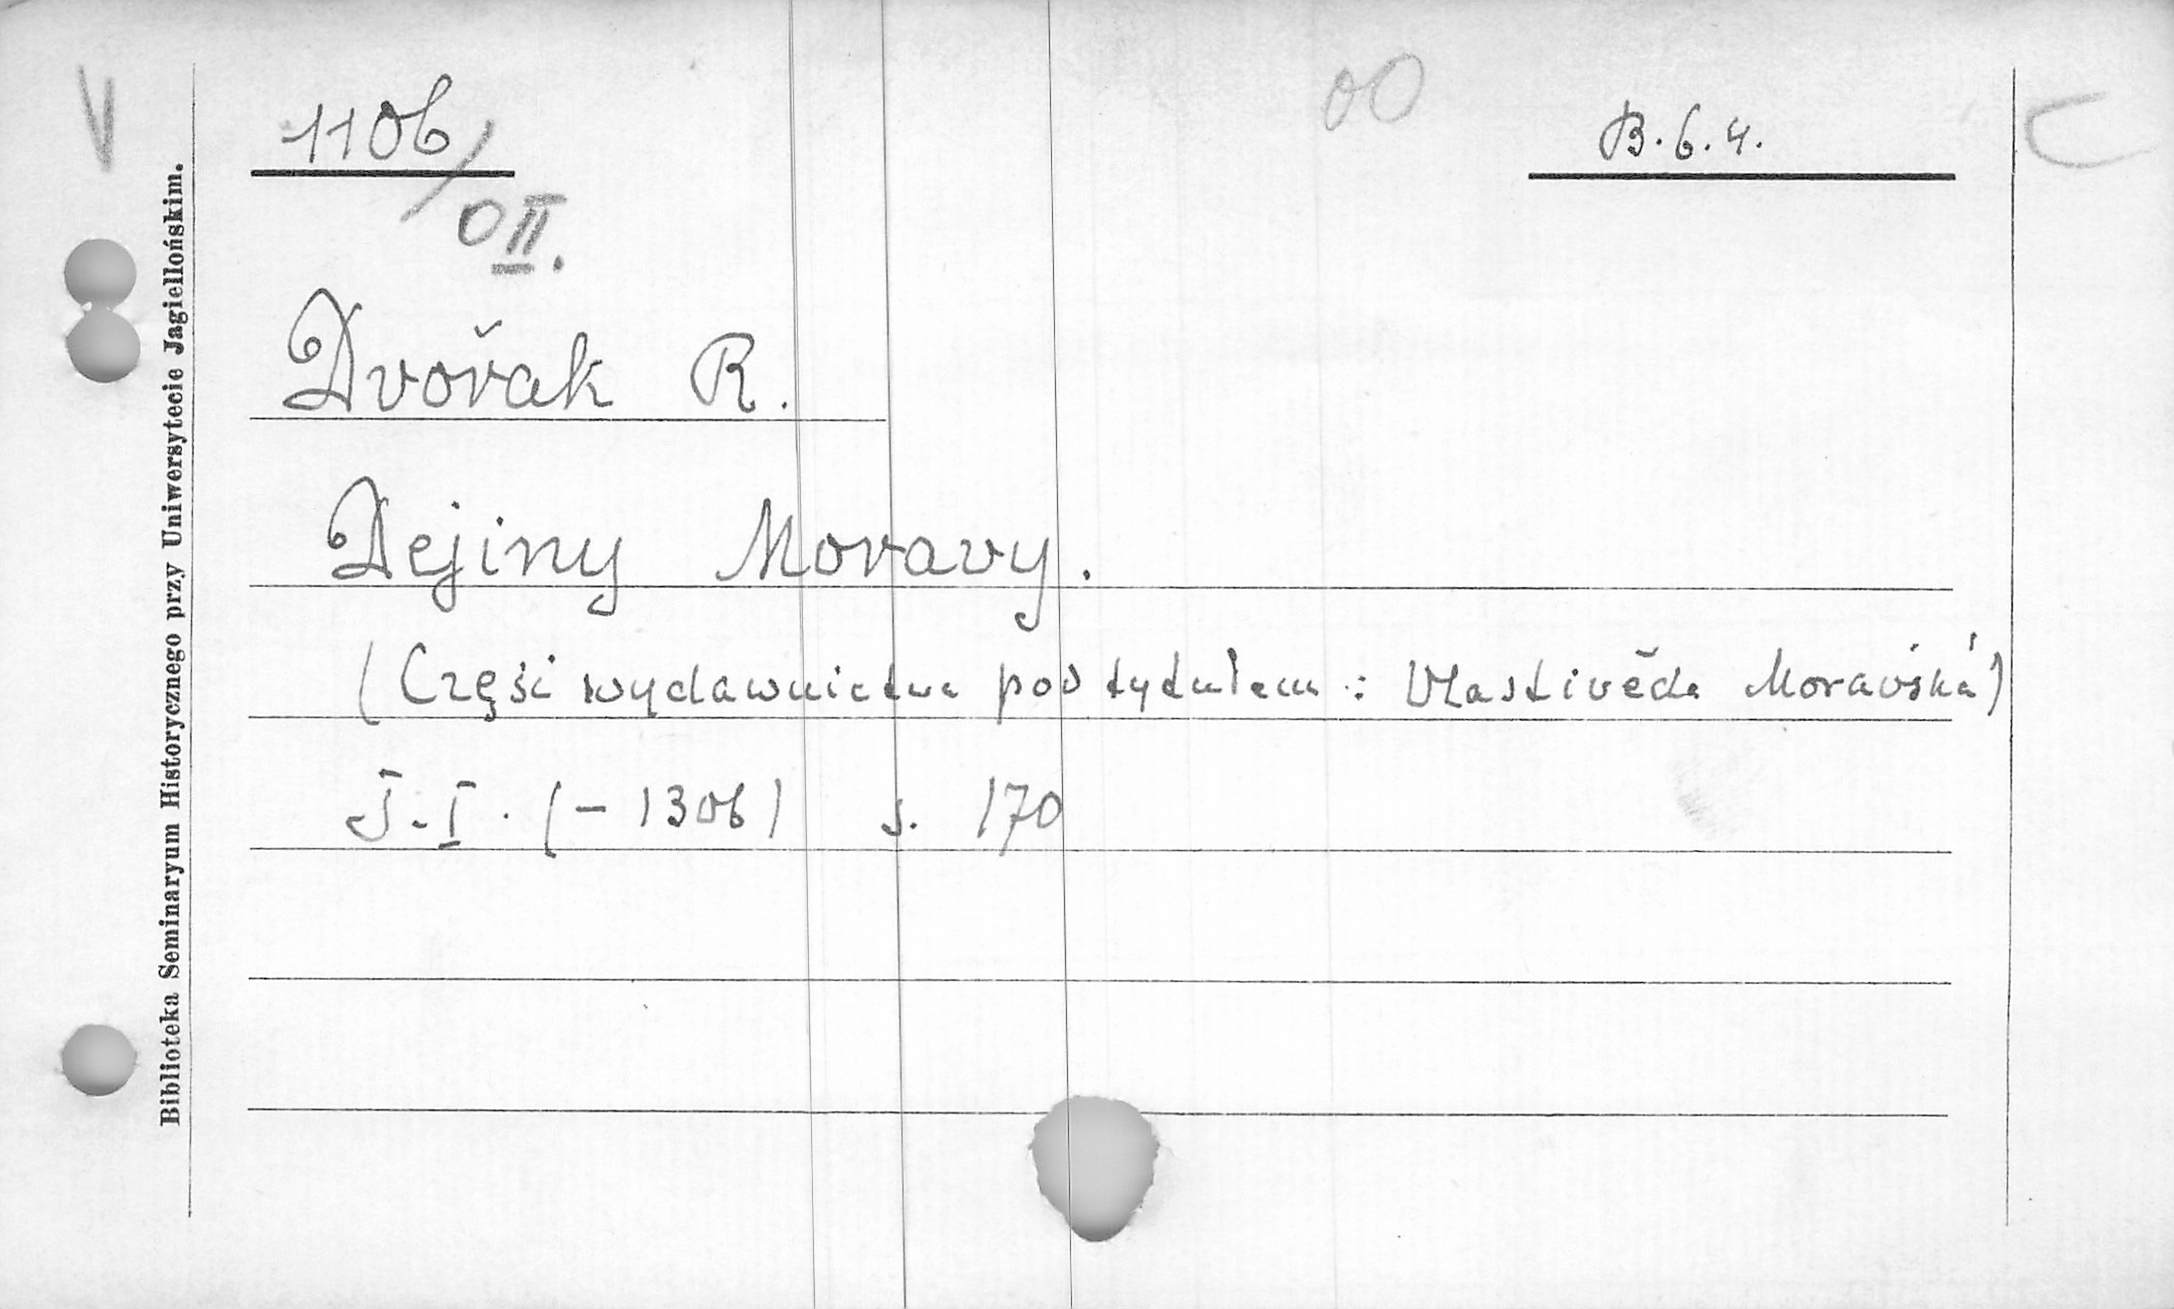 V
1106/
OII.
oO
B.6.4.
C
Dvořak R.
Dejiny Moravy.
(Części wydawnictwa pod tytułem: Vlastivěda Moravská)
T.I. (-1306) s. 170
Biblioteka Seminaryum Historycznego przy Uniwersytecie Jagiellońskim.